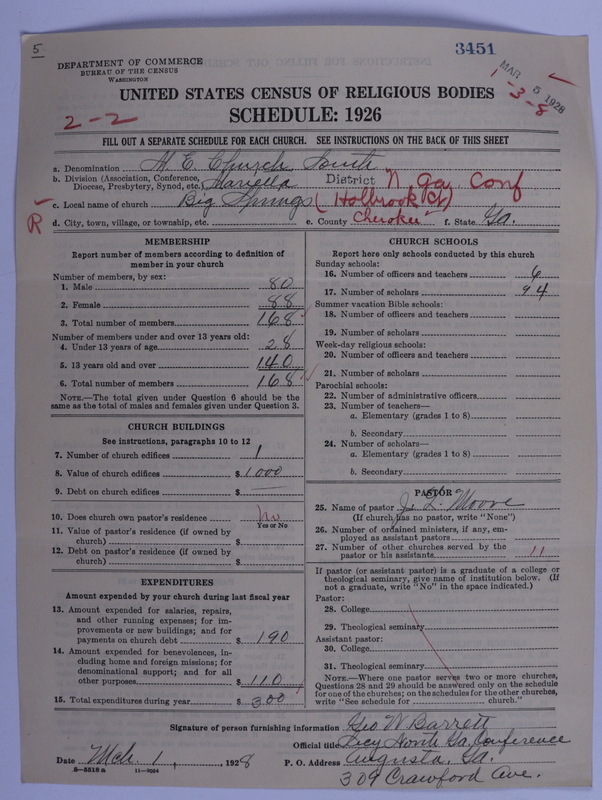 5
3451
DEPARTMENT OF COMMERCE
BUREAU OF THE CENSUS
WASHINGTON
MAR 5 1928
1-3-8
UNITED STATES CENSUS OF RELIGIOUS BODIES
2-2
SCHEDULE: 1926
FILL OUT A SEPARATE SCHEDULE FOR EACH CHURCH. SEE INSTRUCTIONS ON THE BACK OF THIS SHEET
a. Denomination M. E. Church, South
b. Division (Association, Conference, Diocese, Presbytery, Synod, etc.) Marietta District N. Ga. Conf
c. Local name of church Big Springs (Holbrook Ct.)
R
d. City, town, village, or township, etc. e. County Cherokee f. State Ga.
MEMBERSHIP
Report number of members according to definition of
member in your church
Number of members, by sex:
1. Male 80
2. Female 88
3. Total number of members 168
Number of members under and over 13 years old:
4. Under 13 years of age 28
5. 13 years old and over 140
6. Total number of members 168
NOTE.—The total given under Question 6 should be the
same as the total of males and females given under Question 3.
CHURCH BUILDINGS
See instructions, paragraphs 10 to 12
7. Number of church edifices 1
8. Value of church edifices $ 1000
9. Debt on church edifices $
10. Does church own pastor's residence No
Yes or No
11. Value of pastor's residence (if owned by
church) $
12. Debt on pastor's residence (if owned by
church) $
EXPENDITURES
Amount expended by your church during last fiscal year
13. Amount expended for salaries, repairs,
and other running expenses; for im-
provements or new buildings; and for
payments on church debt $ 190
14. Amount expended for benevolences, in-
cluding home and foreign missions; for
denominational support; and for all
other purposes $ 110
15. Total expenditures during year $ 300
CHURCH SCHOOLS
Report here only schools conducted by this church
Sunday schools:
16. Number of officers and teachers 6
17. Number of scholars 94
Summer vacation Bible schools:
18. Number of officers and teachers
19. Number of scholars
Week-day religious schools:
20. Number of officers and teachers
21. Number of scholars
Parochial schools:
22. Number of administrative officers
23. Number of teachers—
a. Elementary (grades 1 to 8)
b. Secondary
24. Number of scholars—
a. Elementary (grades 1 to 8)
b. Secondary
PASTOR
25. Name of pastor J. L. Moore
(If church has no pastor, write "None")
26. Number of ordained ministers, if any, em-
ployed as assistant pastors
27. Number of other churches served by the
pastor or his assistants 11
If pastor (or assistant pastor) is a graduate of a college or
theological seminary, give name of institution below. (If
not a graduate, write "No" in the space indicated.)
Pastor:
28. College
29. Theological seminary
Assistant pastor:
30. College
31. Theological seminary
NOTE.—Where one pastor serves two or more churches,
Questions 28 and 29 should be answered only on the schedule
for one of the churches; on the schedules for the other churches,
write "See schedule for church."
Signature of person furnishing information Geo W Barrett
Official title Secy North Ga. Conference
Date Mch. 1, 1928 P. O. Address Augusta, Ga.
8—5518 a 11—9064
309 Crawford Ave.